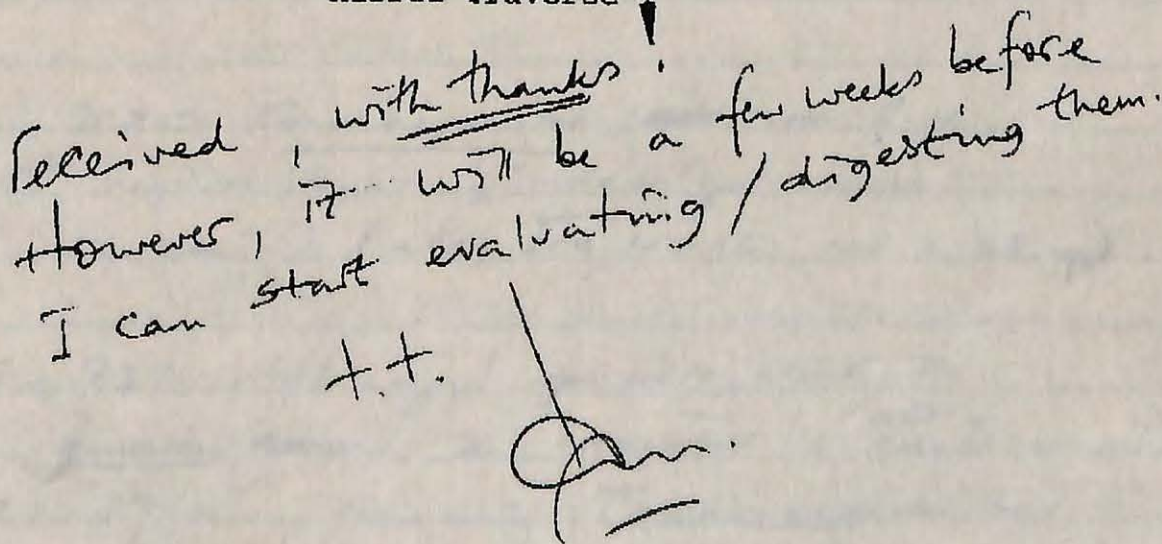 Received, with thanks!
However, it will be a few weeks before
I can start evaluating / digesting them.
t.t.